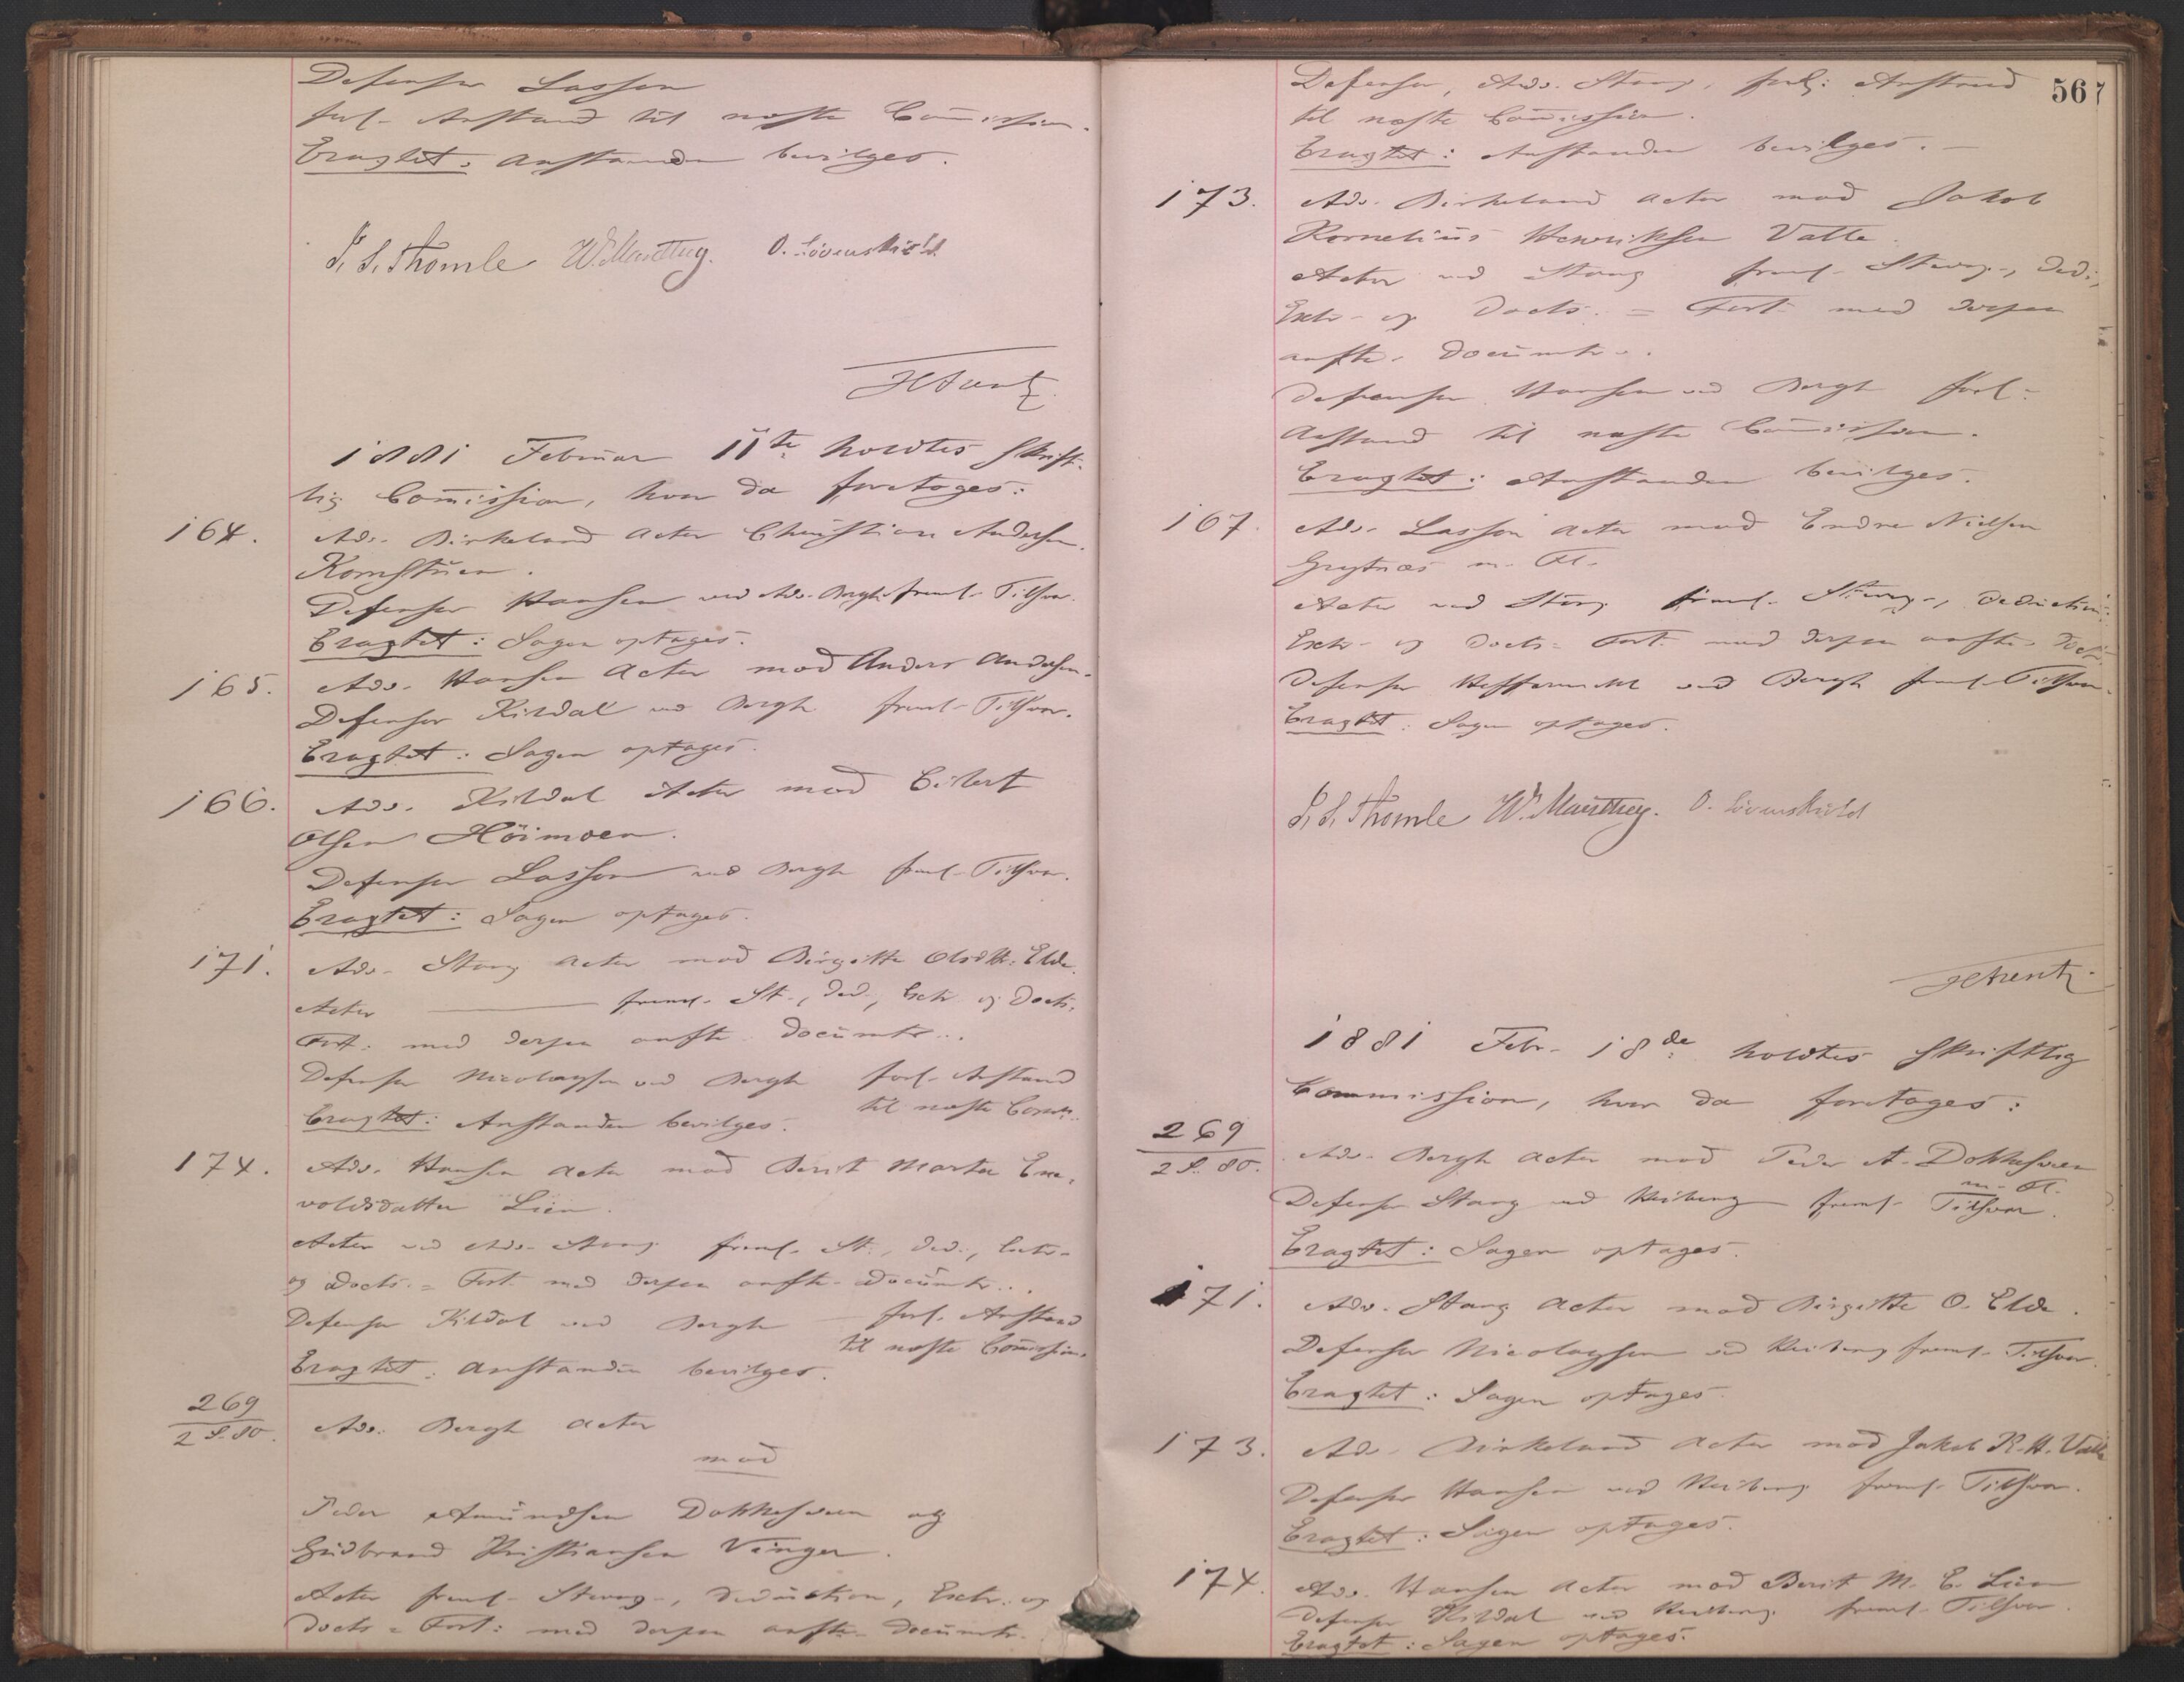 Defensor Lasson
forl. Anstand til næste Com̄ission.
Eragtet: Anstanden bevilges.
S. S. Thomle W. Mariboug. O. Lövenskiold
H Arentz
1881 Februar 11te holdtes Skrift-
lig Com̄ission, hvor da foretoges:
164. Adv. Birkeland Actor Christian Andersen
Kornstuen.
Defensor Hansen ved Adv. Bergh freml. Tilsvar.
Eragtet: Sagen optages.
165. Adv. Hansen Actor mod Anders Andersen.
Defensor Kildal ved Bergh freml. Tilsvar.
Eragtet: Sagen optages.
166. Adv. Kildal Actor mod Eilert
Olsen Höimoen.
Defensor Lasson ved Bergh freml. Tilsvar.
Eragtet: Sagen optages.
171. Adv. Stang Actor mod Birgitte Olsdtr. Elde.
Actor freml. St., Ded., Extr. og Docts.
Fort. med derpaa anfte Documtr..
Defensor Nicolaysen ved Bergh forl. Anstand
til næste Comm.
Eragtet: Anstanden bevilges.
174. Adv. Hansen Actor mod Berit Marta Ene-
voldsdatter Lien.
Actor ved Adv. Stang freml. St., Ded., Extr.
og Docts.= Fort. med derpaa anfte Documtr...
Defensor Kildal ved Bergh forl. Anstand
til næste Com̄ission.
Eragtet: Anstanden bevilges.
269
2 S. 80. Adv. Bergh Actor
mod
Peder Amundsen Dokkesveen og
Gudbrand Kristiansen Vinger.
Actor freml. Stevng., Deduction, Extr. og
Docts= Fort: med derpaa anfte Documtr.
567
Defensor, Adv. Stang, forl: Anstand
til næste Com̄ission.
Eragtet: Anstanden bevilges.
173. Adv. Birkeland Actor mod Jakob
Kornelius Henriksen Valle.
Actor ved Stang freml. Stevng., Ded.,
Extr. og Docts.= Fort med derpaa
anfte. Documtr..
Defensor Hansen ved Bergh forl.
Anstand til næste Com̄ission.
Eragtet: Anstanden bevilges.
167. Adv. Lasson Actor mod Endre Nielsen
Grytnæs m. Fl.
Actor ved Stang freml. Stevng., Deduction,
Extr. og Docts= Fort. med derpaa anfte. Doc
Defensor ved Bergh freml. Tilsvar.
Eragtet: Sagen optages.
S. S. Thomle W. Mariboug. O. Lövenskiold
H Arentz
1881 Febr. 18de holdtes Skriftlig
Commission, hvor da foretoges:
269
2 S. 80. Adv. Bergh Actor mod Peder A. Dokkesveen
m. Fl.
Defensor Stang ved Heiberg freml. Tilsvar.
Eragtet: Sagen optages.
171. Adv. Stang Actor mod Birgitte O. Elde.
Defensor Nicolaysen ved Heiberg freml. Tilsvar.
Eragtet: Sagen optages.
173. Adv. Birkeland Actor mod Jakob K. H. Valle
Defensor Hansen ved Heiberg freml. Tilsvar.
Eragtet: Sagen optages.
174. Adv. Hansen Actor mod Berit M. E. Lien
Defensor Kildal ved Heiberg freml. Tilsvar.
Eragtet: Sagen optages.